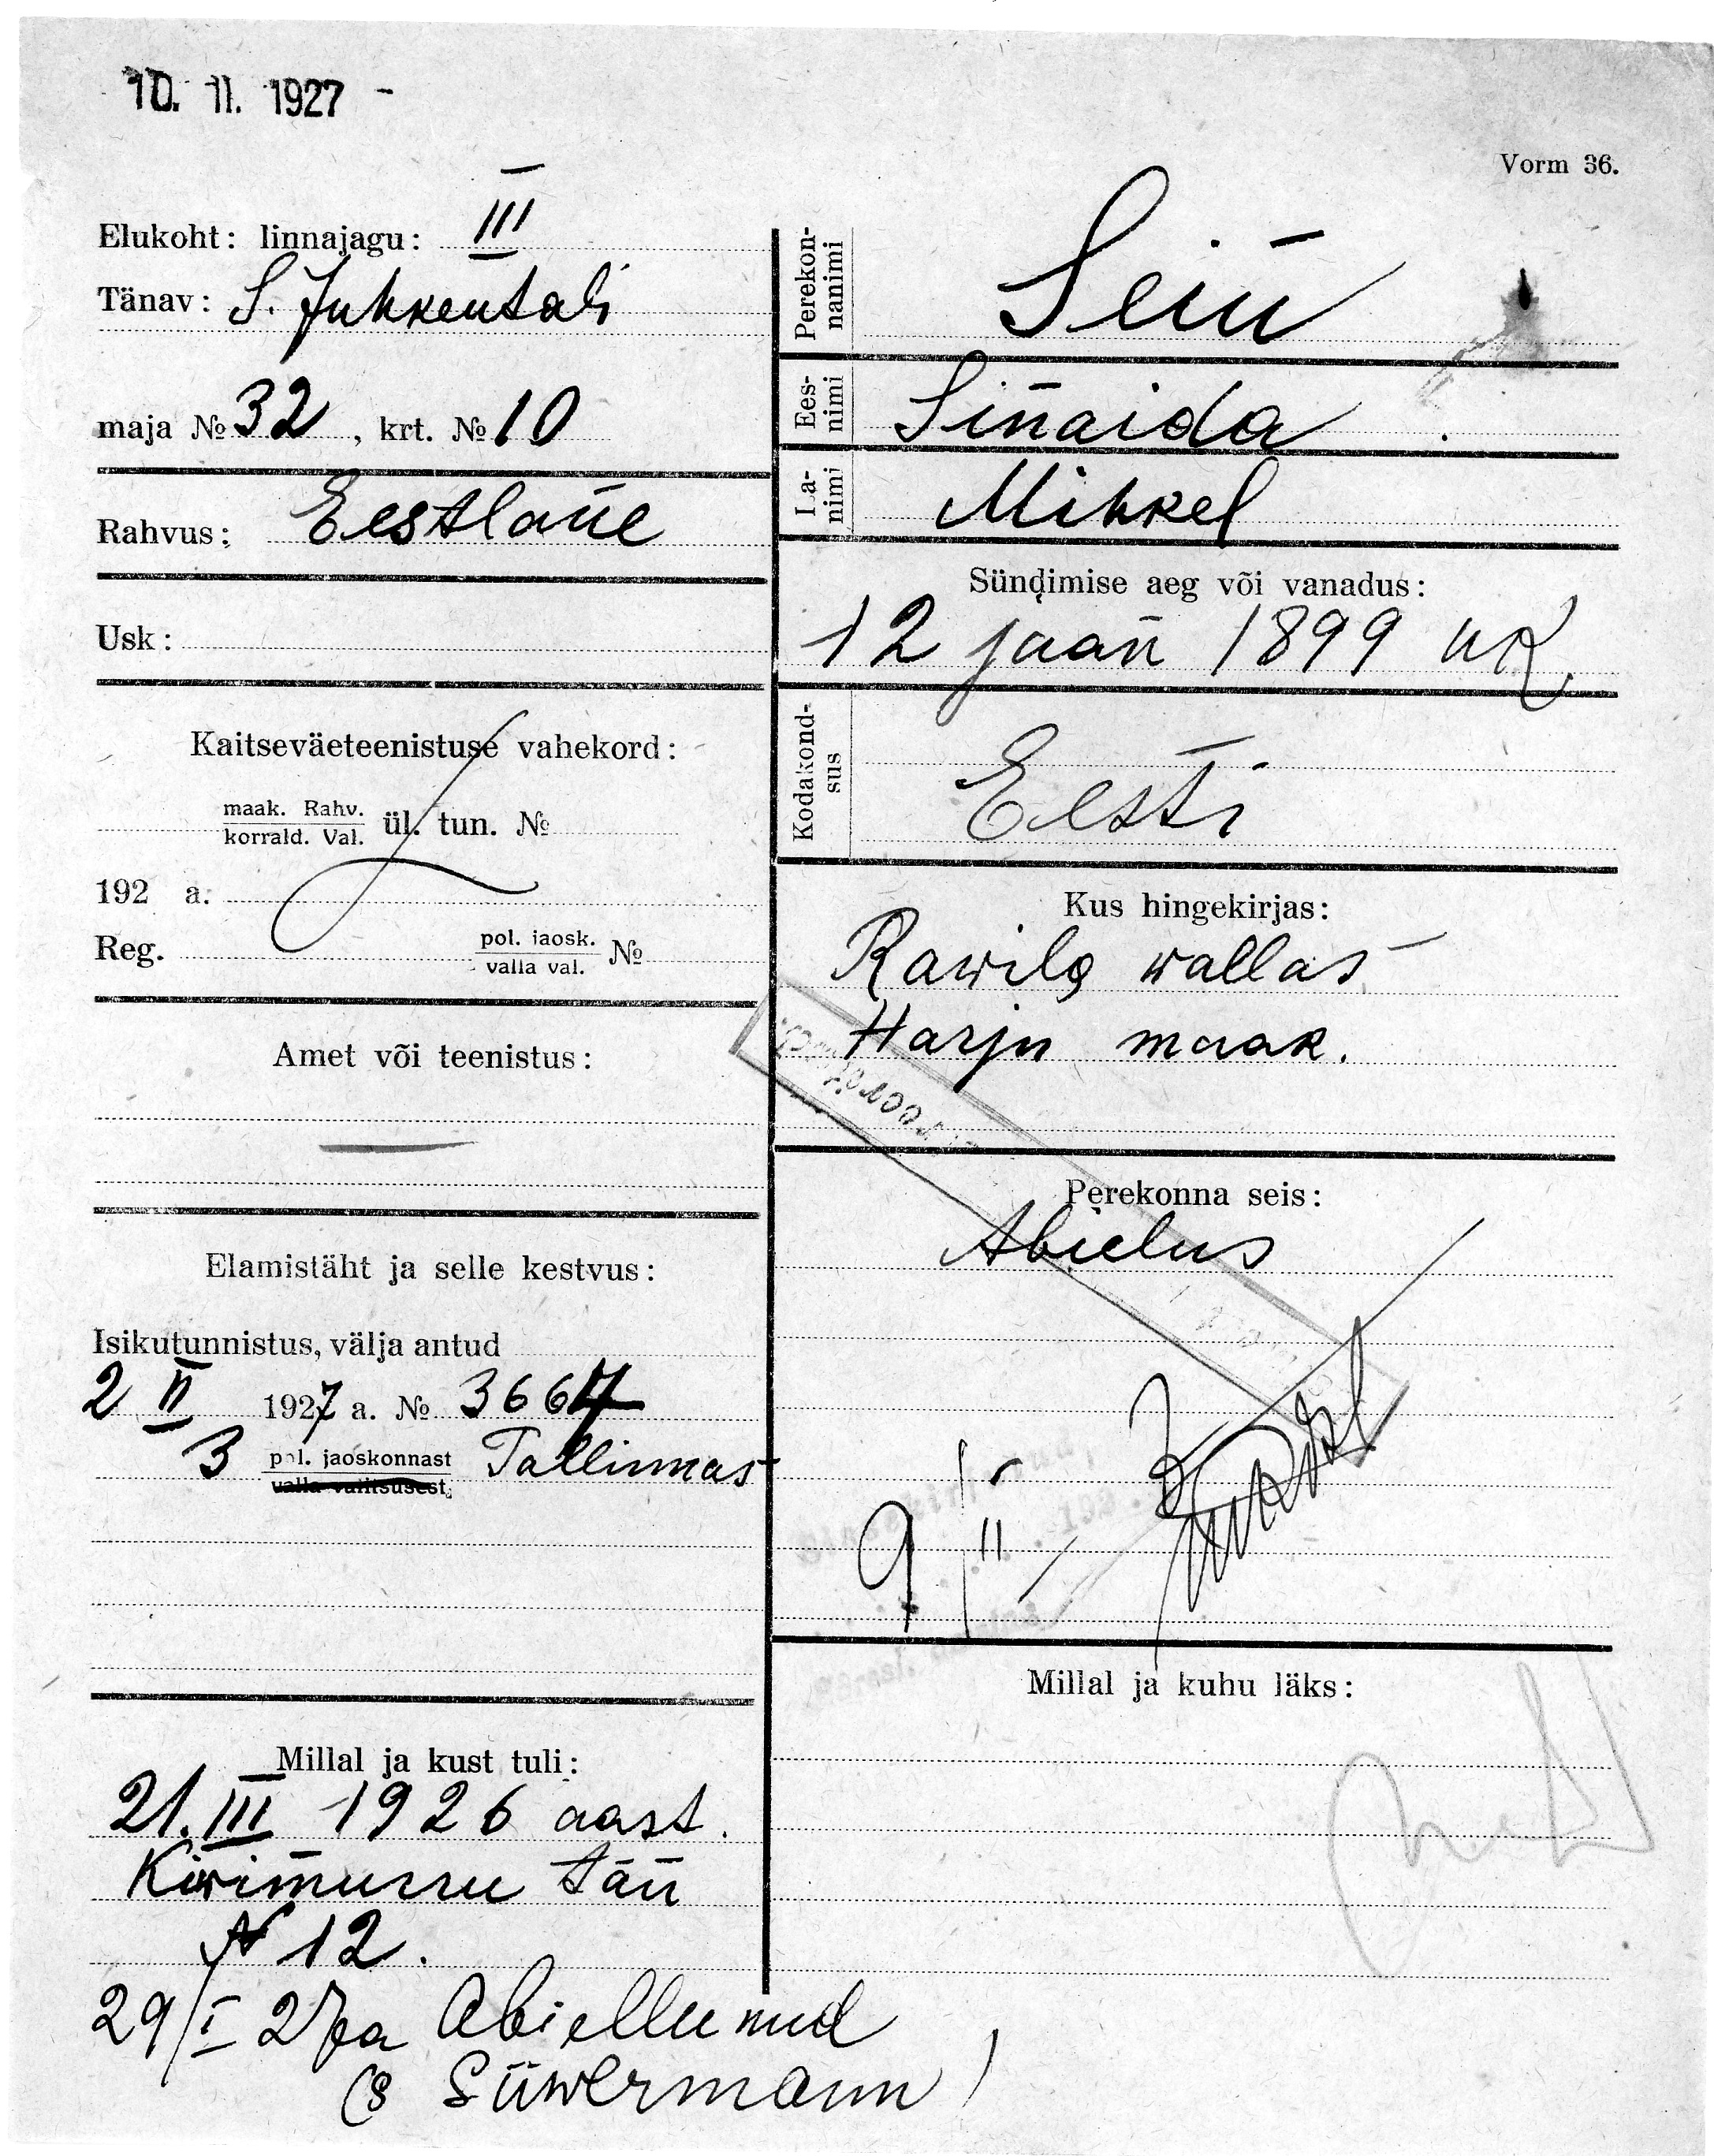 10. II. 1927 -
Vorm 36.
Elukoht: linnajagu: III
Tänav: S. Juhkentali
maja № 32, krt. № 10
Rahvus: Eestlane
Usk:
Kaitseväeteenistuse vahekord:
maak. Rahv.
korrald. Val. ül. tun. №
192 a.
Reg. pol. jaosk.
valla val. №
Amet või teenistus:
Elamistäht ja selle kestvus:
Isikutunnistus, välja antud
2 II 1927 a. № 3667
3 pol. jaoskonnast Tallinnas
valla valitsusest.
Millal ja kust tuli:
21. III 1926 aast.
Kiwimurru tän
N 12.
29/I 27 a Abiellunud
(s Süwermann)
Perekon-
nanimi
Sein
Ees-
nimi
Sinaida
Isa-
nimi
Mihkel
Sündimise aeg või vanadus:
12 jaan 1899 UK
Kodakond-
sus
Eesti
Kus hingekirjas:
Rawila wallas
Harju maak.
Perekonna seis:
Abielus
9/II
Millal ja kuhu läks: